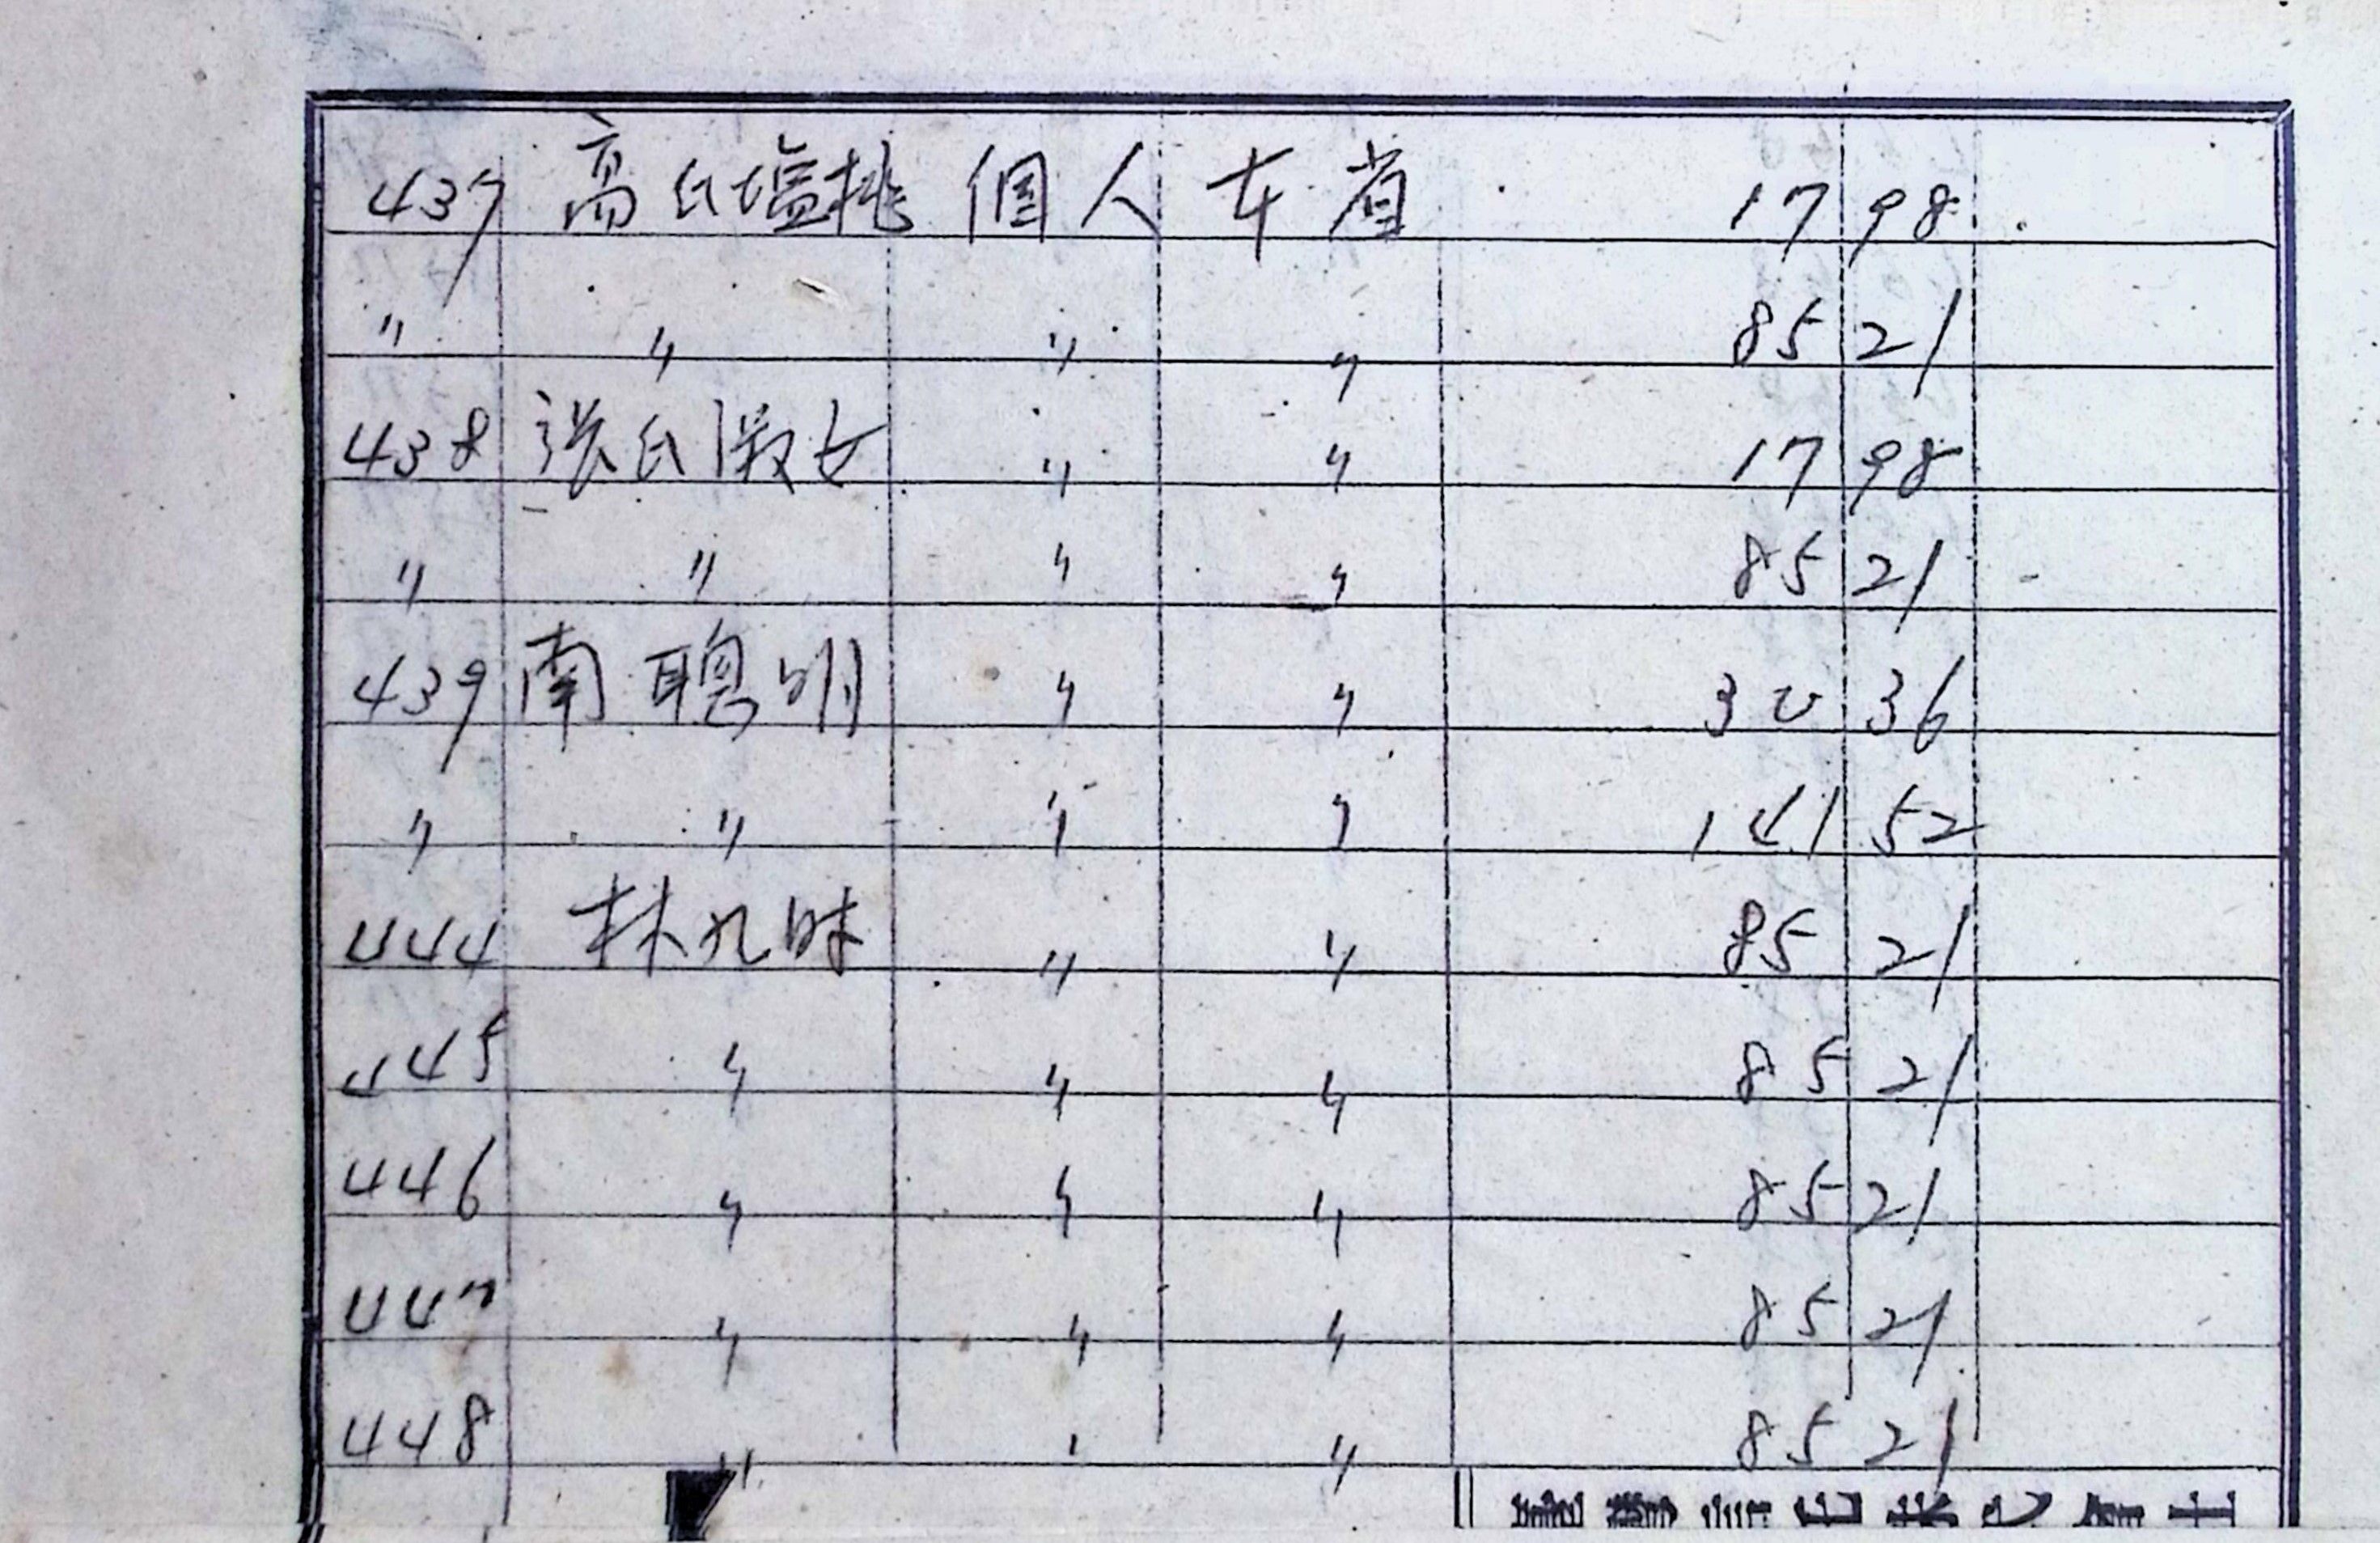 437 高氏塩桃 個人 本省 17 98
〃 〃 〃 〃 85 21
438 張氏淑女 〃 〃 17 98
〃 〃 〃 〃 85 21
439 南聰明 〃 〃 30 36
〃 〃 〃 〃 141 52
444 林九時 〃 〃 85 21
445 〃 〃 〃 85 21
446 〃 〃 〃 85 21
447 〃 〃 〃 85 21
448 〃 〃 〃 85 21